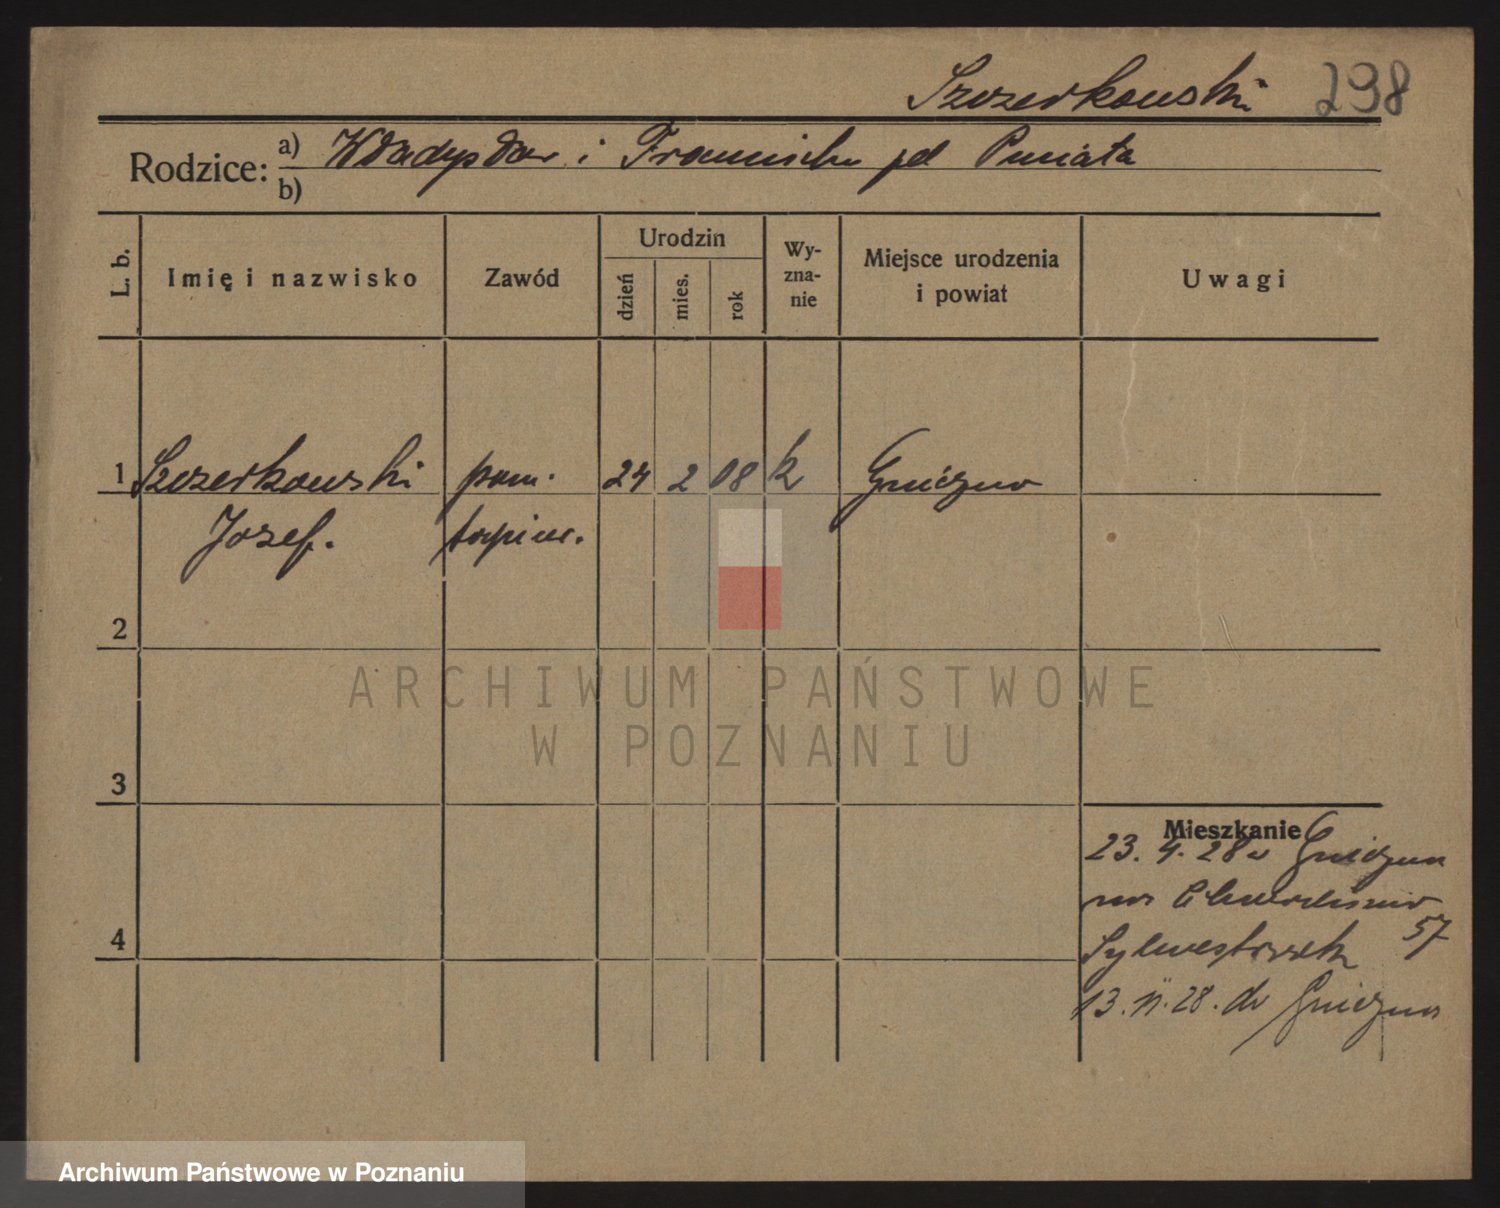 Szczerkowski 298
Rodzice: a) Władysław i Franciszka pd Puniata
b)
L. b.
Imię i nazwisko
Zawód
Urodzin
dzień
mies.
rok
Wy-
zna-
nie
Miejsce urodzenia
i powiat
Uwagi
1 Szczerkowski pom. 24 2 08 k Gniezno
Józef. tapice.
2
3
4
Mieszkanie
23. 4. 28 z Gniezna
na
57
Sylwestrzak
13. 11. 28. do Gniezna
ARCHIWUM PAŃSTWOWE
W POZNANIU
Archiwum Państwowe w Poznaniu